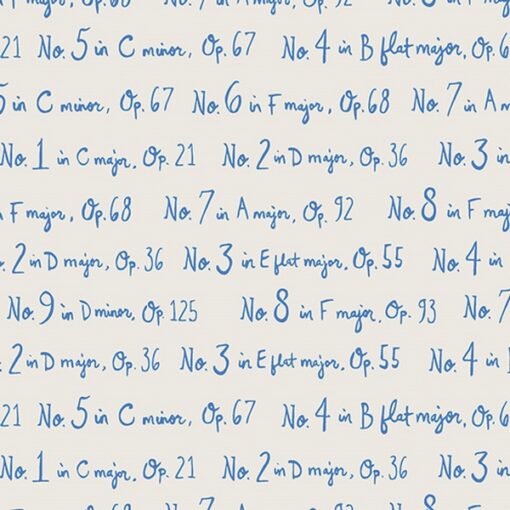 F major, Op. 68 No. 7 in A major, Op. 92 No. 8 in F
21 No. 5 in C minor, Op. 67 No. 4 in B flat major, Op. 6
5 in C minor, Op. 67 No. 6 in F major, Op. 68 No. 7 in A m
No. 1 in C major, Op. 21 No. 2 in D major, Op. 36 No. 3 in
n F major, Op. 68 No. 7 in A major, Op. 92 No. 8 in F maj
. 2 in D major, Op. 36 No. 3 in E flat major, Op. 55 No. 4 in
No. 9 in D minor, Op. 125 No. 8 in F major, Op. 93 No. 7
. 2 in D major, Op. 36 No. 3 in E flat major, Op. 55 No. 4 in B
21 No. 5 in C minor, Op. 67 No. 4 in B flat major, Op. 6
No. 1 in C major, Op. 21 No. 2 in D major, Op. 36 No. 3 in